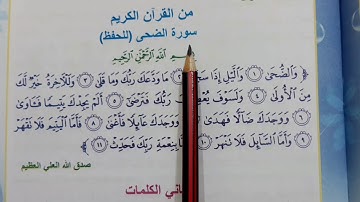 من القرآن الكريم
سورة الضحى (للحفظ)
ـمِ ٱللَّهِ ٱلرَّحْمَٰنِ ٱلرَّحِيمِ
وَٱلضُّحَىٰ ١ وَٱلَّيْلِ إِذَا ٢ مَا وَدَّعَكَ رَبُّكَ وَمَا قَلَىٰ ٣ وَلَلْـَٔاخِرَةُ خَيْرٌ لَّكَ
مِنَ ٱلْأُولَىٰ ٤ وَلَسَوْفَ رَبُّكَ فَتَرْضَىٰٓ ٥ أَلَمْ يَجِدْكَ يَتِيمًا فَـَٔاوَىٰ
٦ وَوَجَدَكَ ضَآلًّا فَهَدَىٰ وَوَجَدَكَ عَآئِلًا فَأَغْنَىٰ ٨ فَأَمَّا ٱلْيَتِيمَ فَلَا تَقْهَرْ
٩ وَأَمَّا ٱلسَّآئِلَ فَلَا تَنْهَرْ بِنِعْمَةِ رَبِّكَ فَحَدِّثْ ١١
صدق الله العلي العظيم
ـاني الكلمات